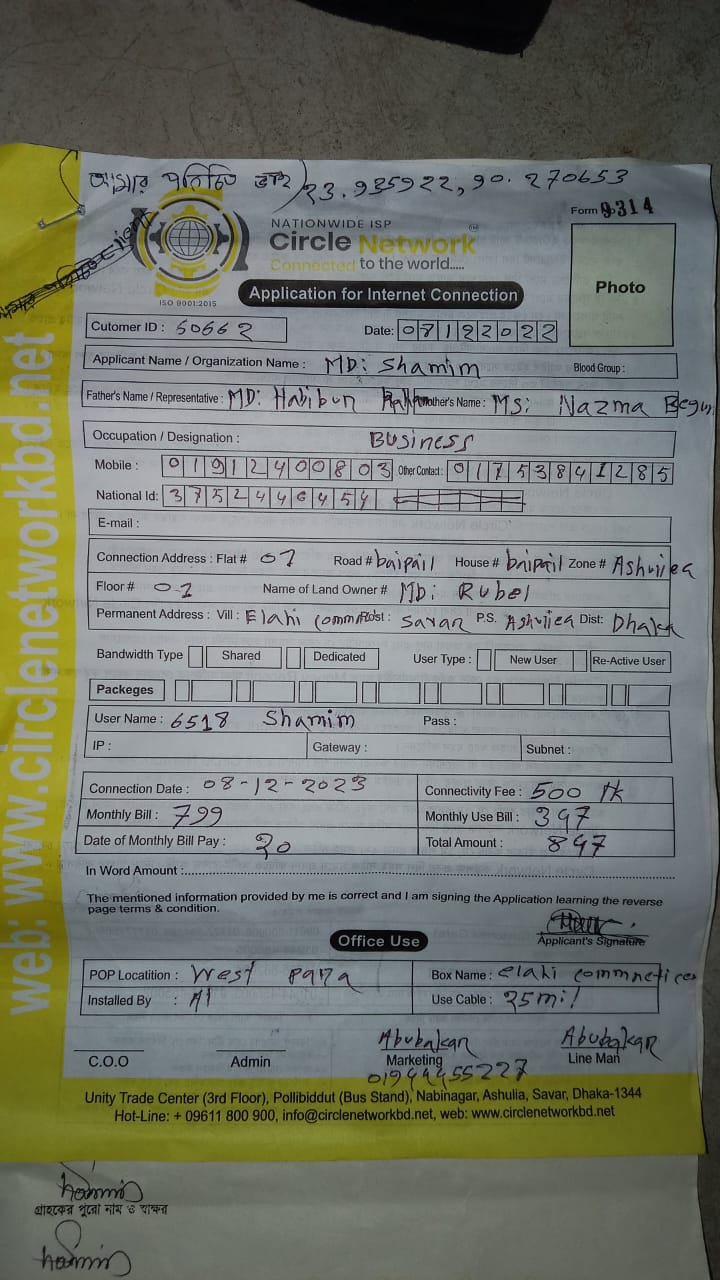 আমার পরিচিত ভাই 23.935922, 90.270653
Form 9314
NATIONWIDE ISP
Circle Network
Connected to the world.....
ISO 9001:2015
Application for Internet Connection
Photo
Cutomer ID : 50662 Date: 08122022
Applicant Name / Organization Name : MD: Shamim Blood Group :
Father's Name / Representative : MD: Habibun Mother's Name : MS: Nazma Begum
Occupation / Designation : Business
Mobile : 01912400803 Other Contact : 01753841285
National Id: 3752446454
E-mail :
Connection Address : Flat # 01 Road # baipail House # baipail Zone # Ashuliea
Floor # 01 Name of Land Owner # MD: Rubel
Permanent Address : Vill : Elahi Post : Savar P.S. Ashuliea Dist: Dhaka
Bandwidth Type Shared Dedicated User Type : New User Re-Active User
Packeges
User Name : 6518 Shamim Pass :
IP : Gateway : Subnet :
Connection Date : 08-12-2023 Connectivity Fee : 500 tk
Monthly Bill : 799 Monthly Use Bill : 397
Date of Monthly Bill Pay : 20 Total Amount : 897
In Word Amount :
The mentioned information provided by me is correct and I am signing the Application learning the reverse
page terms & condition.
Applicant's Signature
Office Use
POP Locatition : West para Box Name : elahi commnetices
Installed By : A1 Use Cable : 25mil
Abubakar Abubakar
C.O.O Admin Marketing Line Man
01944455227
Unity Trade Center (3rd Floor), Pollibiddut (Bus Stand), Nabinagar, Ashulia, Savar, Dhaka-1344
Hot-Line: + 09611 800 900, info@circlenetworkbd.net, web: www.circlenetworkbd.net
web: www.circlenetworkbd.net
গ্রাহকের পুরো নাম ও স্বাক্ষর